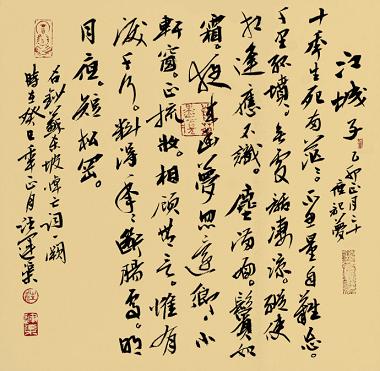 江城子
乙卯正月二十
日夜記夢
十年生死兩茫茫。不思量自難忘。
千里孤墳。無處話淒涼。縱使
相逢應不識。塵滿面。鬢如
霜。夜來幽夢忽還鄉。小
軒窗。正梳妝。相顧無言。惟有
淚千行。料得年年斷腸處。明
月夜。短松岡。
右鈔蘇東坡悼亡詞一闋
時在癸巳年正月